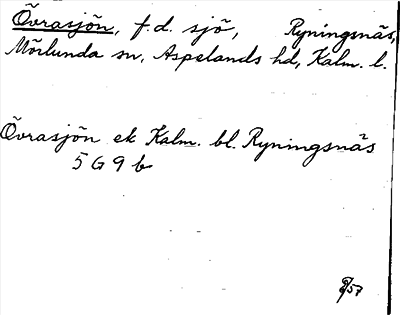 Övrasjön, f.d. sjö, Ryningsnäs,
Mörlunda sn, Aspelands hd, Kalm. l.
Övrasjön ek Kalm. bl. Ryningsnäs
5 G 9 b
/57